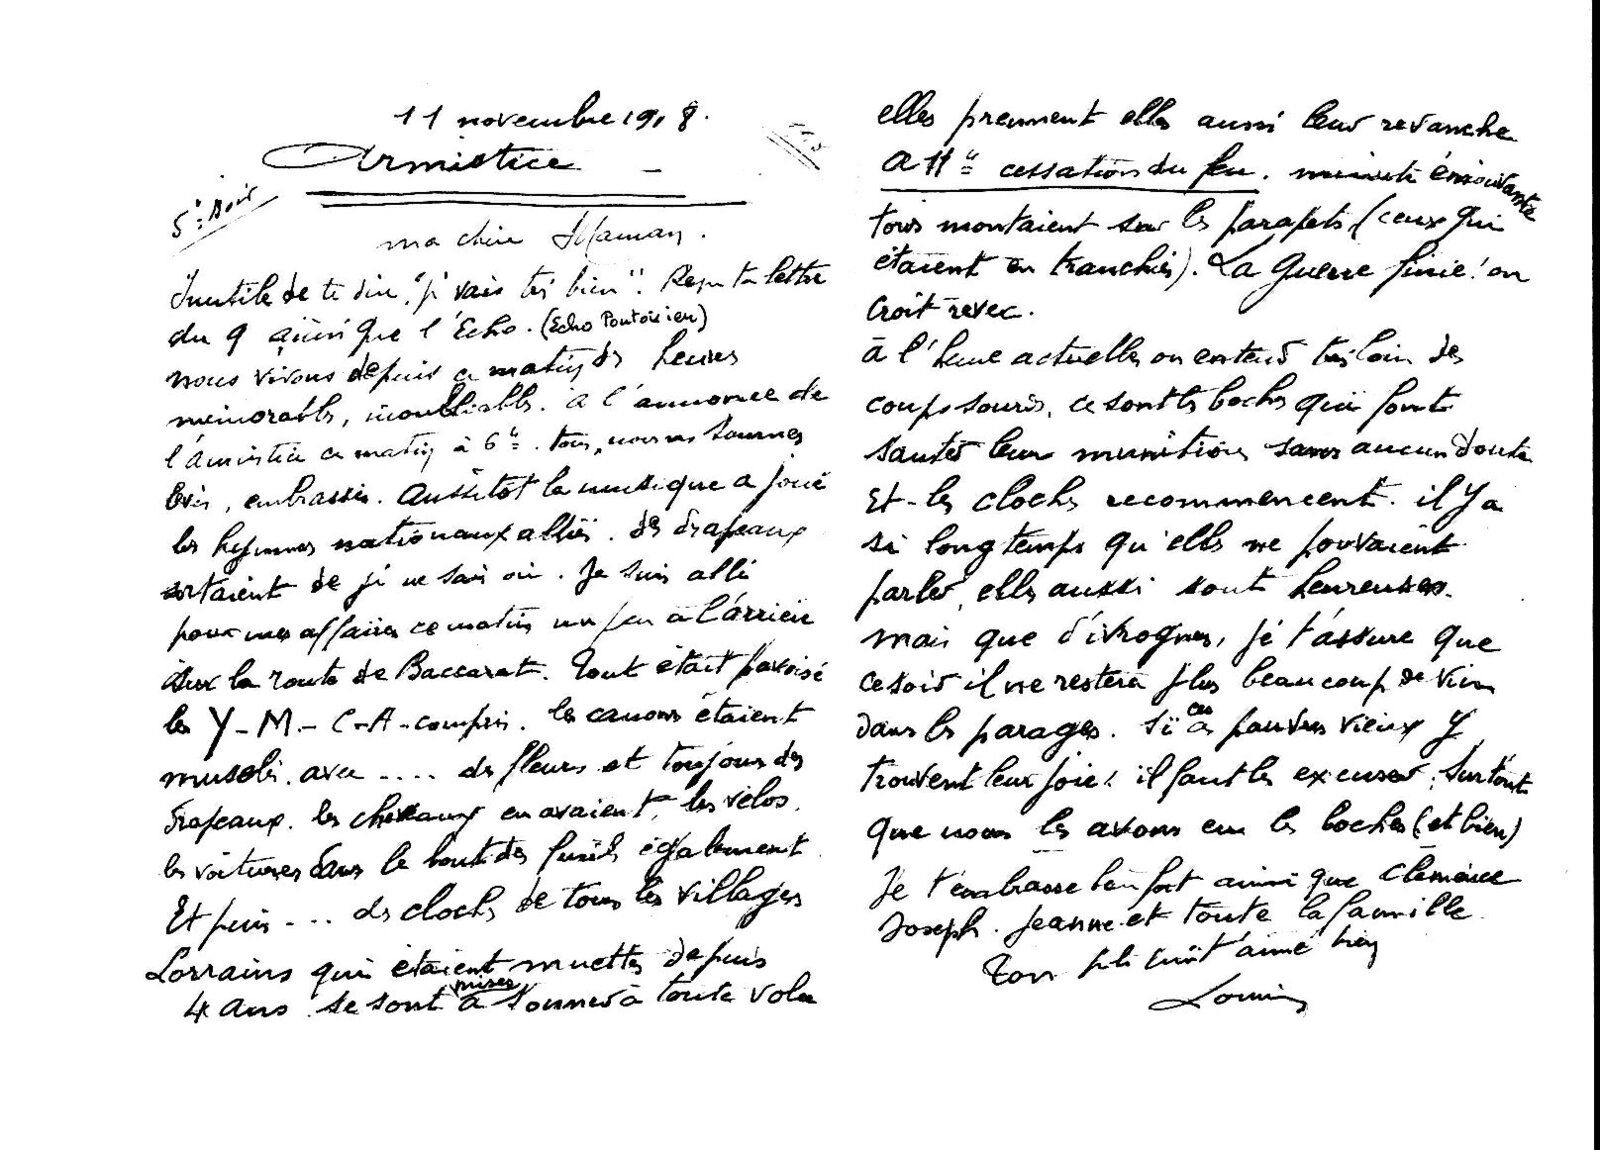 11 novembre 1918.
Armistice
5h soir
ma chère Maman.
Inutile de te dire "je vais très bien". Reçu ta lettre
du 9 ainsi que l'Echo. (Echo Pontoisien)
nous vivons depuis ce matin des heures
mémorables, inoubliables. à l'annonce de
l'armistice ce matin à 6h. tous, nous nous sommes
levés, embrassés. Aussitôt la musique a joué
les hymnes nationaux alliés. des drapeaux
sortaient de je ne sais où. Je suis allé
pour mes affaires ce matin un peu à l'arrière
sur la route de Baccarat. Tout était pavoisé
les Y-M-C-A-compris. les canons étaient
muselés. avec .... des fleurs et toujours des
drapeaux. les chevaux en avaient, les vélos.
les voitures dans le bout des fusils également
Et puis ... des cloches de tous les villages
Lorrains qui étaient muettes depuis
4 ans se sont mises à sonner à toute volée
elles prennent elles aussi leur revanche
A 11h cessation du feu. minute émouvante
tous montaient sur les parapets (ceux qui
étaient en tranchées). La Guerre finie! on
croit rêver.
à l'heure actuelle on entend très loin des
coups sourds, ce sont les boches qui font
sauter leurs munitions sans aucun doute
Et les cloches recommencent. il y a
si longtemps qu'elles ne pouvaient
parler, elles aussi sont heureuses.
mais que d'ivrognes, je t'assure que
ce soir il ne restera plus beaucoup de vin
dans les parages. Si ces pauvres vieux y
trouvent leur joie! il faut les excuser. Surtout
que nous les avons eu les boches (et bien)
Je t'embrasse bien fort ainsi que Clémence
Joseph. Jeanne et toute la famille.
Ton qui t'aime bien